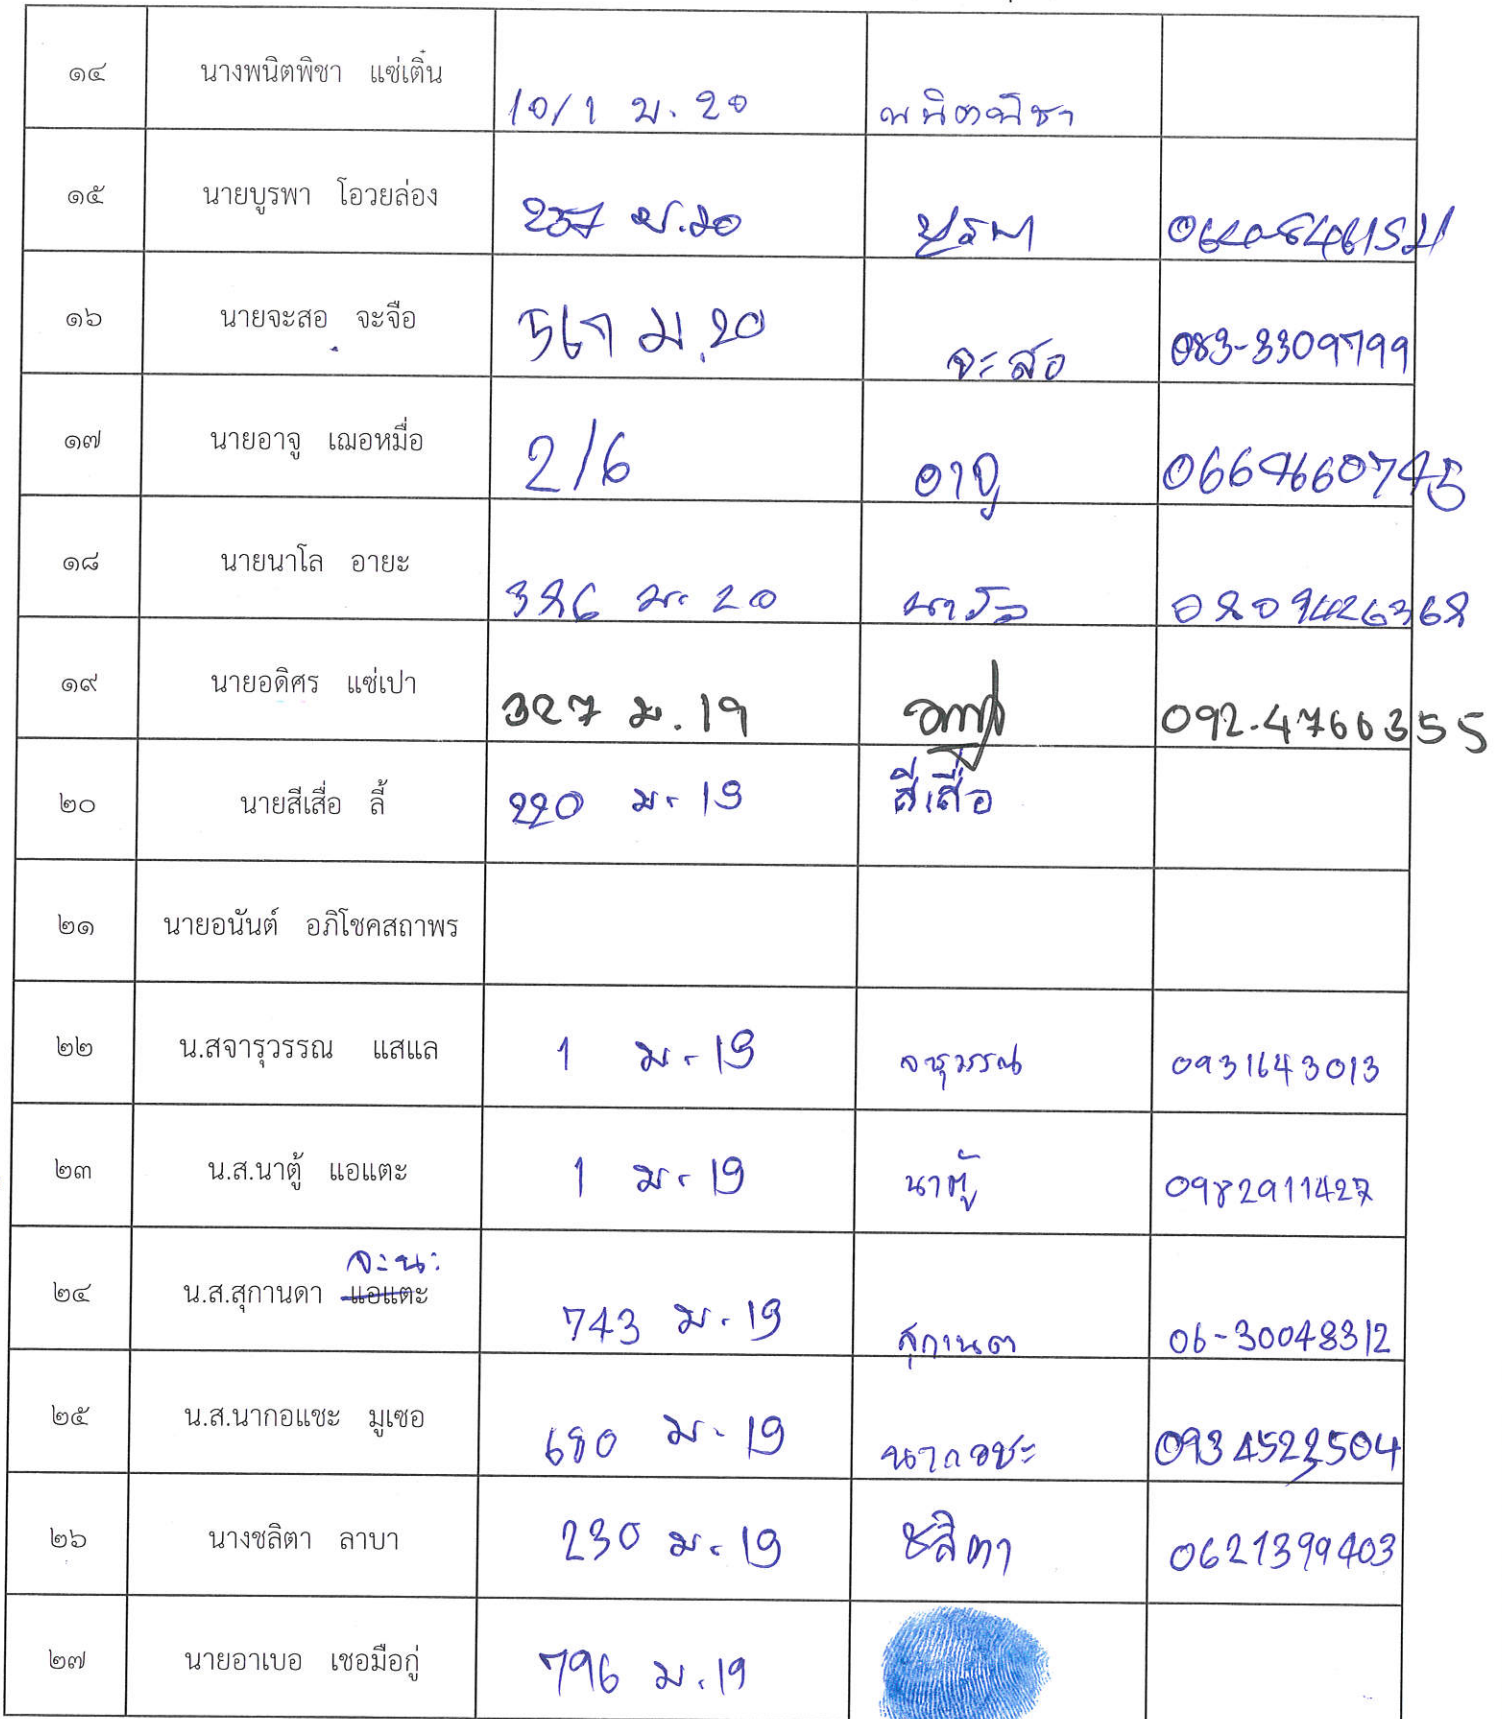 ๑๔ นางพนิตพิชา แซ่เติ๋น 10/1 ม.20 พนิตพิชา
๑๕ นายบูรพา โอวยล่อง 257 ม.20 บูรพา
๑๖ นายจะสอ จะจือ 567 ม.20 จะสอ 083-3309799
๑๗ นายอาจู เฌอหมื่อ 2/6 อาจู 0664660745
๑๘ นายนาโล อายะ 386 ม.20 นาโล
๑๙ นายอดิศร แซ่เปา 327 ม.19 092-4766355
๒๐ นายสีเสื่อ ลี้ 220 ม.19 สีเสื่อ
๒๑ นายอนันต์ อภิโชคสถาพร
๒๒ น.สจารุวรรณ แสแล 1 ม.19 จารุวรรณ 0931643013
๒๓ น.ส.นาตู้ แอแตะ 1 ม.19 นาตู้ 0982911427
จะนะ
๒๔ น.ส.สุกานดา แอแตะ 743 ม.19 สุกานดา 06-30048312
๒๕ น.ส.นากอแชะ มูเซอ 680 ม.19 0934523504
๒๖ นางชลิตา ลาบา 230 ม.19 ชลิตา 0621399403
๒๗ นายอาเบอ เชอมือกู่ 796 ม.19